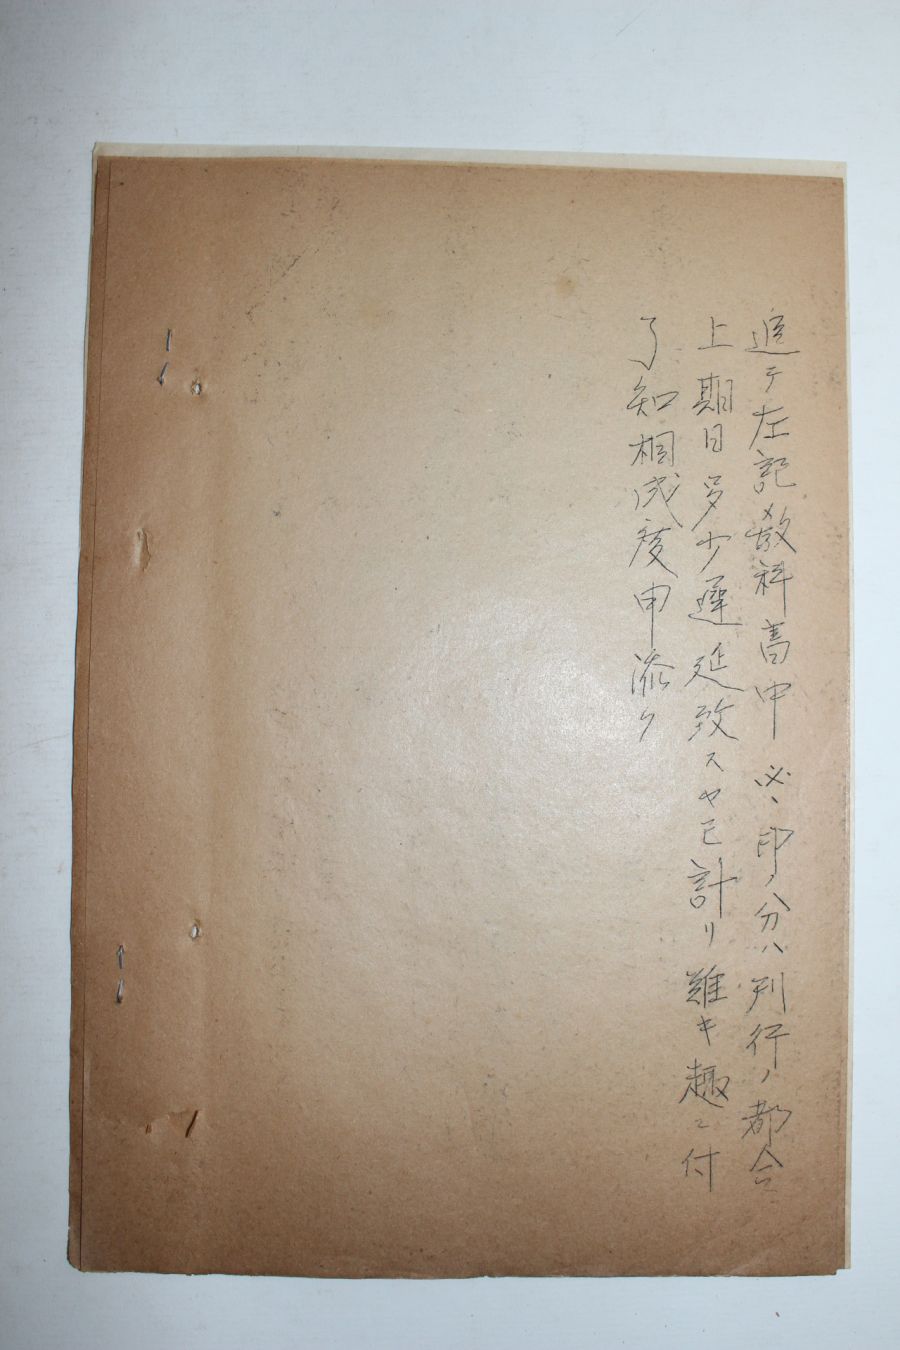 追テ左記教科書中必ヽ印ノ分ハ刊行ノ都合
上期日多少遅延致スヤモ計リ難キ趣ニ付
了知相成度申添フ